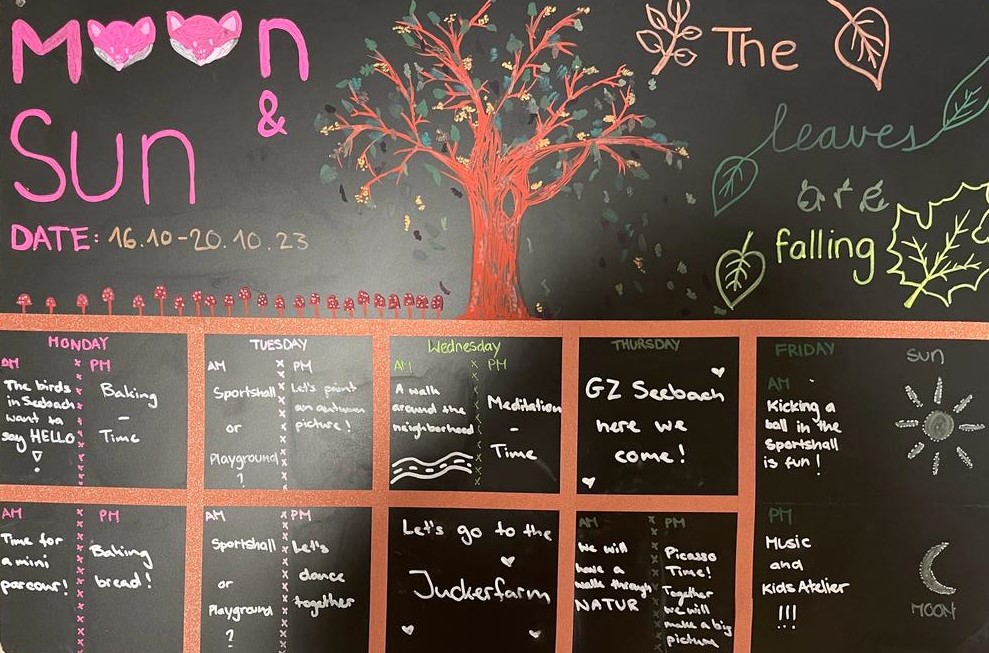 Moon
&
Sun
DATE: 16.10-20.10.23
The
leaves
are
falling
MONDAY
AM
The birds
in Seebach
want to
say HELLO
!
PM
Baking
-
Time
TUESDAY
AM
Sportshall
or
Playground
?
PM
Let's paint
an autumn
picture!
Wednesday
AM
A walk
around the
neighborhood
PM
Meditation
-
Time
THURSDAY
GZ Seebach
here we
come!
FRIDAY
AM
Kicking a
ball in the
Sportshall
is fun!
Sun
AM
Time for
a mini
parcour!
PM
Baking
bread!
AM
Sportshall
or
Playground
?
PM
Let's
dance
together
Let's go to the
Juckerfarm
AM
We will
have a
walk through
NATUR
PM
Picasso
Time!
Together
we will
make a big
picture
PM
Music
and
Kids Atelier
!!!
MOON